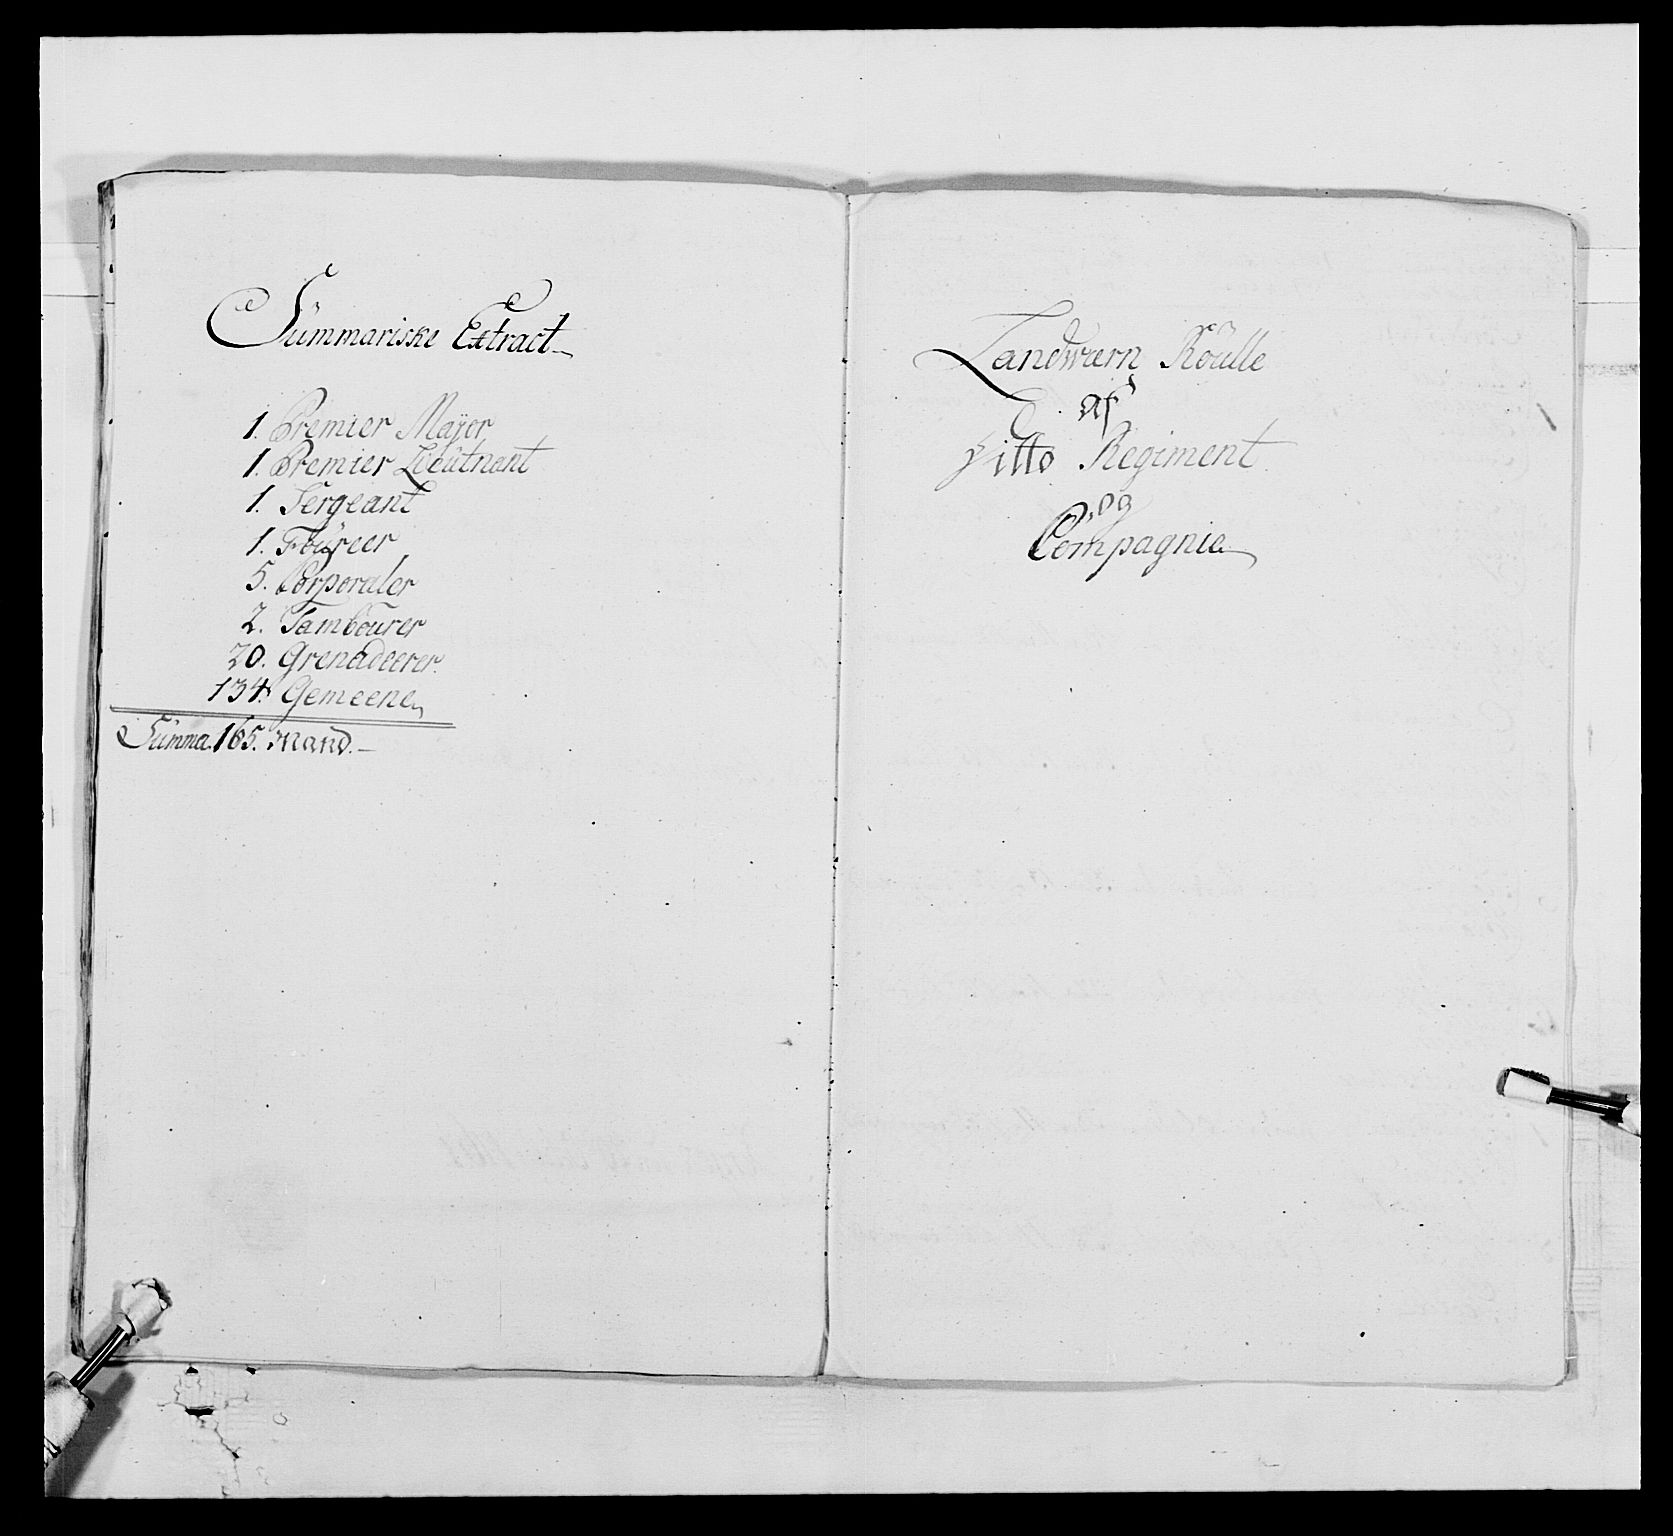 Summariske Extract
1. Premier Major
1. Premier Lieutnant
1. Sergeant
1. Foureer
5. Corporaler
2. Tambourer
20. Grenadeerer.
134. Gemeene
Summa. 165. Mand.
Landwærn Roulle
af
Ditto Regiment
og
Compagnie